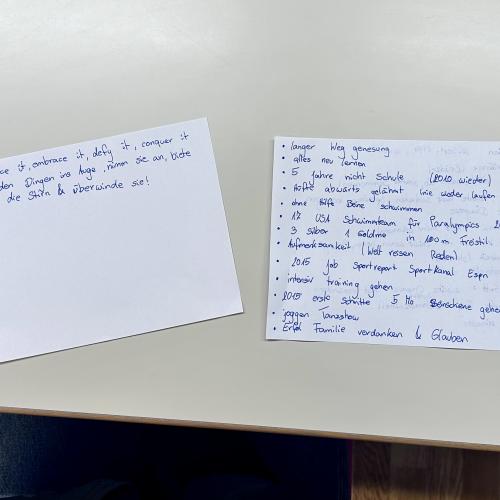 it, embrace it, defy it, conquer it
den Dingen ins Auge, nimm sie an, biete
die Stirn & überwinde sie!
• langer Weg genesung
• alles neu lernen
• 5 Jahre nicht Schule (2010 wieder)
• Hüfte abwärts gelähmt (nie wieder laufen
• ohne Hilfe Beine schwimmen
• 17 USA Schwimmteam für Paralympics
• 3 Silber 1 Goldme in 100m Freistil
• Aufmerksamkeit (Welt reisen Reden)
• 2015 Job Sportreport Sportkanal Espn
• intensiv training gehen
• 2015 erste Schritte 5 Mo gehen
• joggen Tanzshow
• Erfol Familie verdanken & Glauben